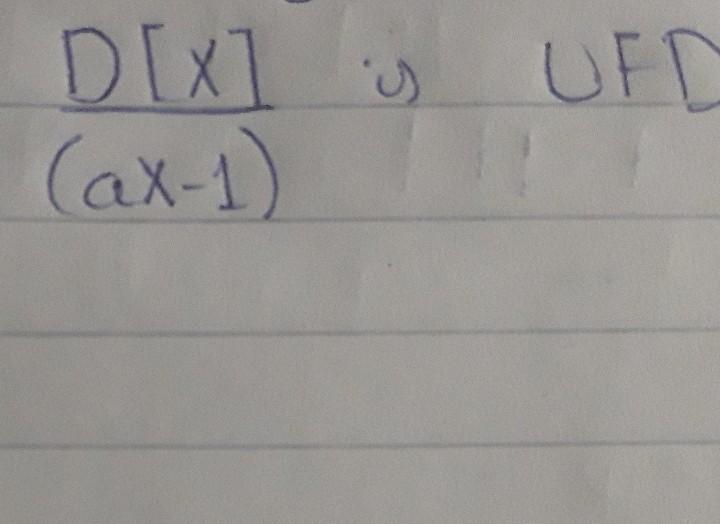 D[X] is UFD
(aX-1)